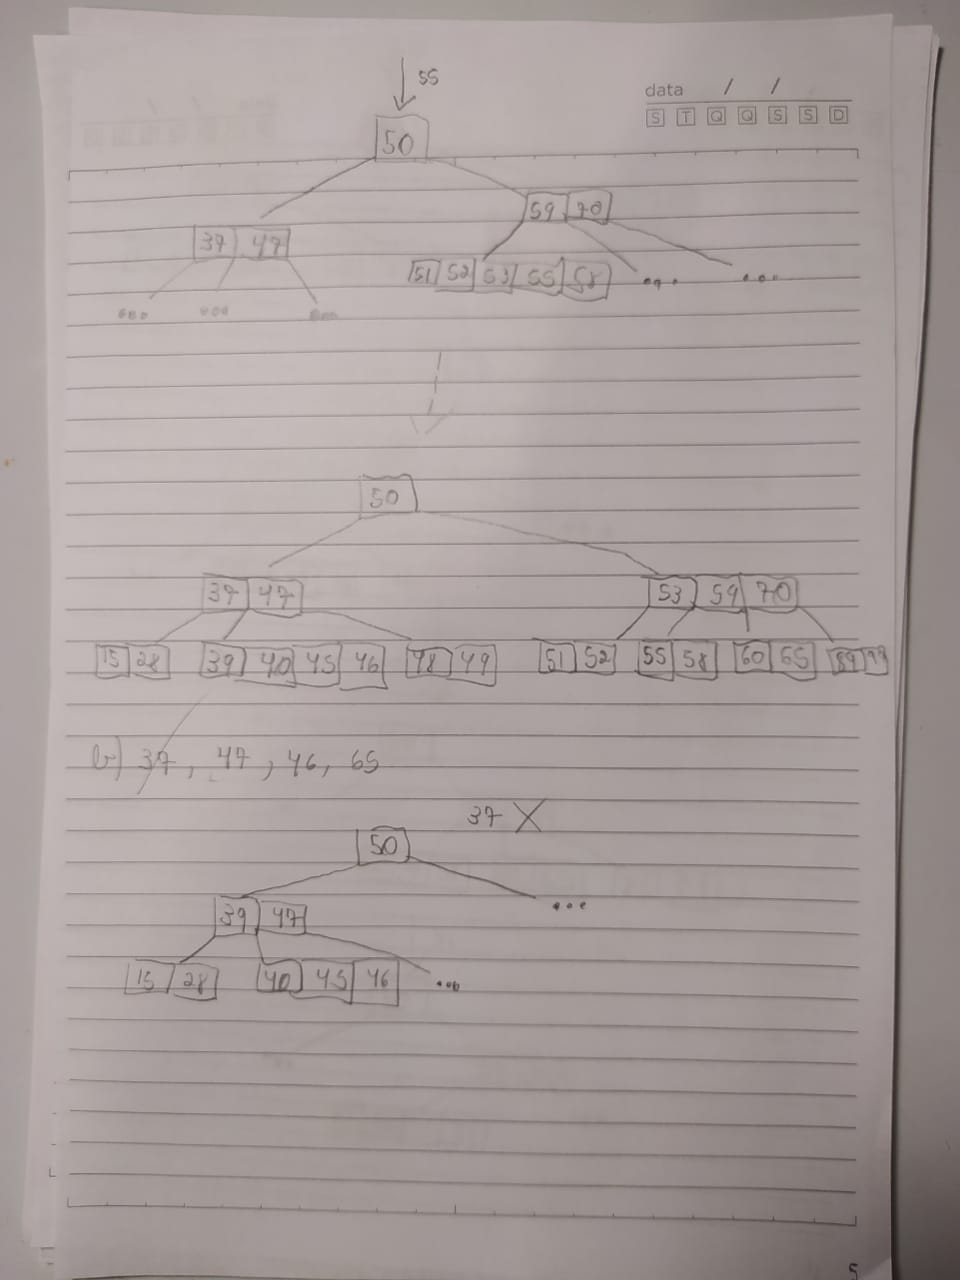 55
data / /
S T Q Q S S D
50
59 70
37 47
51 52 53 55 58 ... ...
... ... ...
50
37 47 53 59 70
15 28 39 40 45 46 48 49 51 52 55 58 60 65 89
b) 37, 47, 46, 65
37 X
50
...
39 47
15 28 40 45 46 ...
5